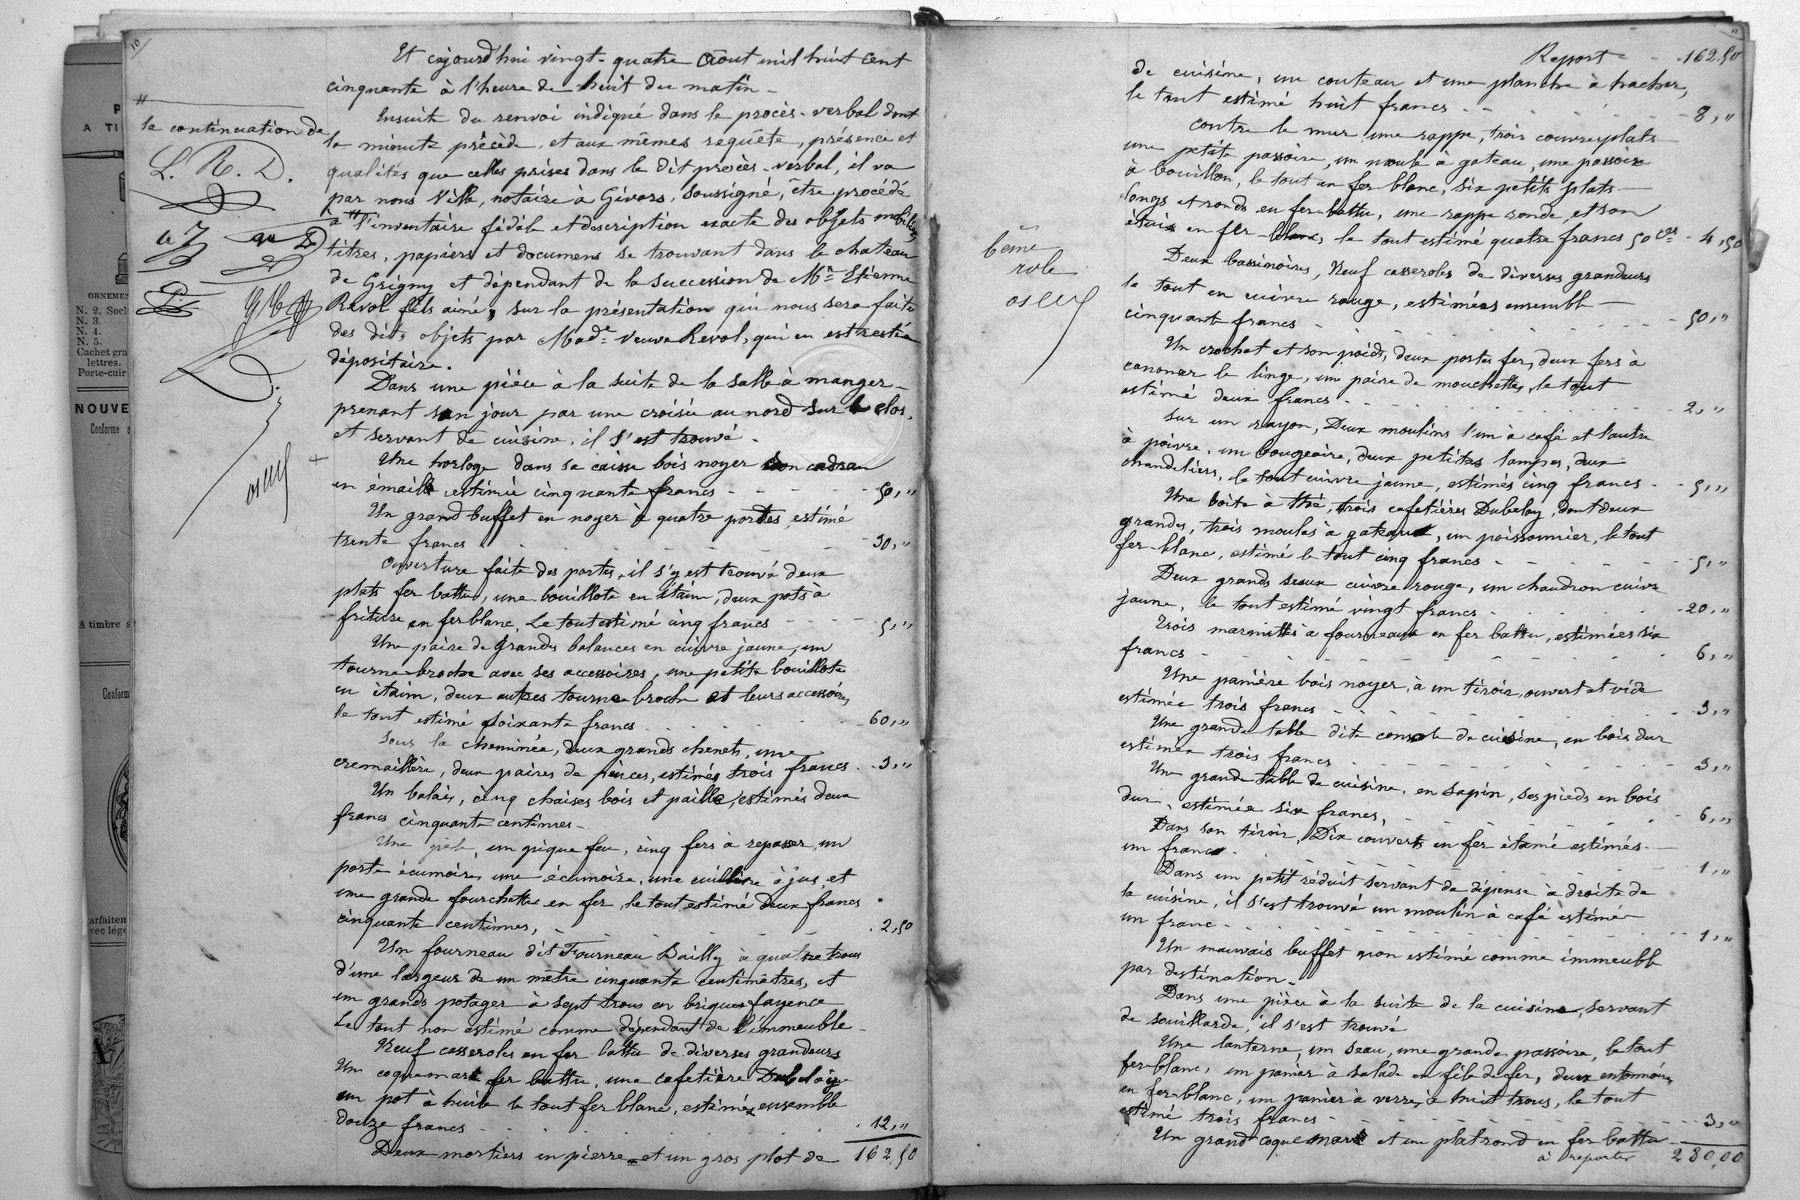 10
Et cejourd'hui vingt-quatre Aout mil huit cent
cinquante à l'heure de huit du matin –
Ensuite du renvoi indiqué dans le procès-verbal dont
la minute précède, et aux mêmes requête, présence et
qualités que celles prises dans le dit procès-verbal, il va
par nous Ville, notaire à Givors, soussigné, être procédé
à # l'inventaire fidèle et description exacte des objets mobiliers
titres, papiers et documens se trouvant dans le chateau
de Grigny et dépendant de la succession de Mr. Etienne
Revol fils ainé, sur la présentation qui nous sera faite
des dits objets par Made. veuve Revol, qui en est restée
dépositaire.
Dans une pièce à la suite de la salle à manger
prenant son jour par une croisée au nord sur le clos,
et servant de cuisine, il s'est trouvé –
Une horloge dans sa caisse bois noyer son cadran
en émaille estimée cinquante francs - - - 50,"
Un grand buffet en noyer à quatre portes estimé
trente francs - - - 30,"
Ouverture faite des portes, il s'y est trouvé deux
plats fer battu, une bouillote en étaim, deux pots à
friture en fer blanc, Le tout estimé cinq francs - - - 5,"
Une paire de grandes balances en cuivre jaune, un
tourne-broche avec ses accessoires, une petite bouillote
en étaim, deux autres tourne broche et leurs accessoires,
le tout estimé soixante francs - - - 60,"
Sous la cheminée, deux grands chenets, une
cremaillère, deux paires de pinces, estimés trois francs - 3,"
Un balais, cinq chaises bois et paille, estimés deux
francs cinquante centimes –
Une pèle, un pique feu, cinq fers à repasser, un
porte écumoire, une écumoire, une cuillère à jus, et
une grande fourchette en fer, le tout estimé Deux francs
cinquante centimes, - - - 2,50
Un fourneau dit Fourneau Bailly à quatre trous
d'une largeur de un mètre cinquante centimètres, et
un grand potager à sept trous en briques fayence
Le tout non estimé comme dépendant de l'immeuble –
Neuf casseroles en fer battu de diverses grandeurs
Un coquemart fer battu, une cafetière Dubeloy
un pot à huile le tout fer blanc, estimés ensemble
douze francs - - - 12,"
Deux mortiers en pierre et un gros plot de 162,50
#
la continuation de
L. R. D.
11
Report - - - 162.50
de cuisine, un couteau et une planche à hacher,
le tout estimé huit francs - - - 8,"
Contre le mur une rappe, trois couvreplats
une petite passoire, un moule à gateau, une passoire
à bouillon, le tout en fer blanc, six petits plats
longs et ronds en fer battu, une rappe ronde, et son
étui en fer-blanc, le tout estimé quatre francs 50 ces - 4,50
Deux bassinoires, Neuf casseroles de diverses grandeurs
le tout en cuivre rouge, estimées ensemble –
cinquante francs - - - 50,"
Un crochet et son poids, deux portes fer, deux fers à
canoner le linge, un paire de mouchettes, le tout
estimé deux francs - - - 2,"
Sur un rayon, Deux moulins l'un à café et l'autre
à poivre, un bougeoire, deux petites lampes, deux
chandeliers, le tout cuivre jaune, estimés cinq francs - - 5,"
Une boite à thé, trois cafetières Dubeloy, dont deux
grandes, trois moules à gateaux, un poissonnier, le tout
fer-blanc, estimé le tout cinq francs - - - 5,"
Deux grands seaux cuivre rouge, un chaudron cuivre
jaune, le tout estimé vingt francs - - - 20,"
Trois marmittes à fourneaux en fer battu, estimées six
francs - - - 6,"
Une panière bois noyer, à un tiroir, ouvert et vide
estimée trois francs - - - 3,"
Une grande table dite console de cuisine, en bois dur
estimée trois francs - - - 3,"
Une grande table de cuisine, en sapin, ses pieds en bois
dur, estimée six francs, - - - 6,"
Dans son tiroir, Dix couverts en fer étamé estimés –
un franc - - - 1,"
Dans un petit réduit servant de dépense à droite de
la cuisine, il s'est trouvé un moulin à café estimée
un franc - - - 1,"
Un mauvais buffet non estimé comme immeuble
par destination –
Dans une pièce à la suite de la cuisine, servant
de souillarde, il s'est trouvé
Une lanterne, un seau, une grande passoire, le tout
fer-blanc, un panier à salade en fil de fer, deux entonnoirs
en fer-blanc, un panier à verre, à huit trous, le tout
estimé trois francs - - - 3,"
Un grand coquemard et un plat rond en fer battu
à reporter 280,00
6ème
role
A TI
ORNEMEN
N. 2. Socl
N. 3.
N. 4.
N. 5.
Cachet gra
lettres.
Porte-cuir
NOUVE
Conforme
A timbre s
Conform
arfaitem
vec lége